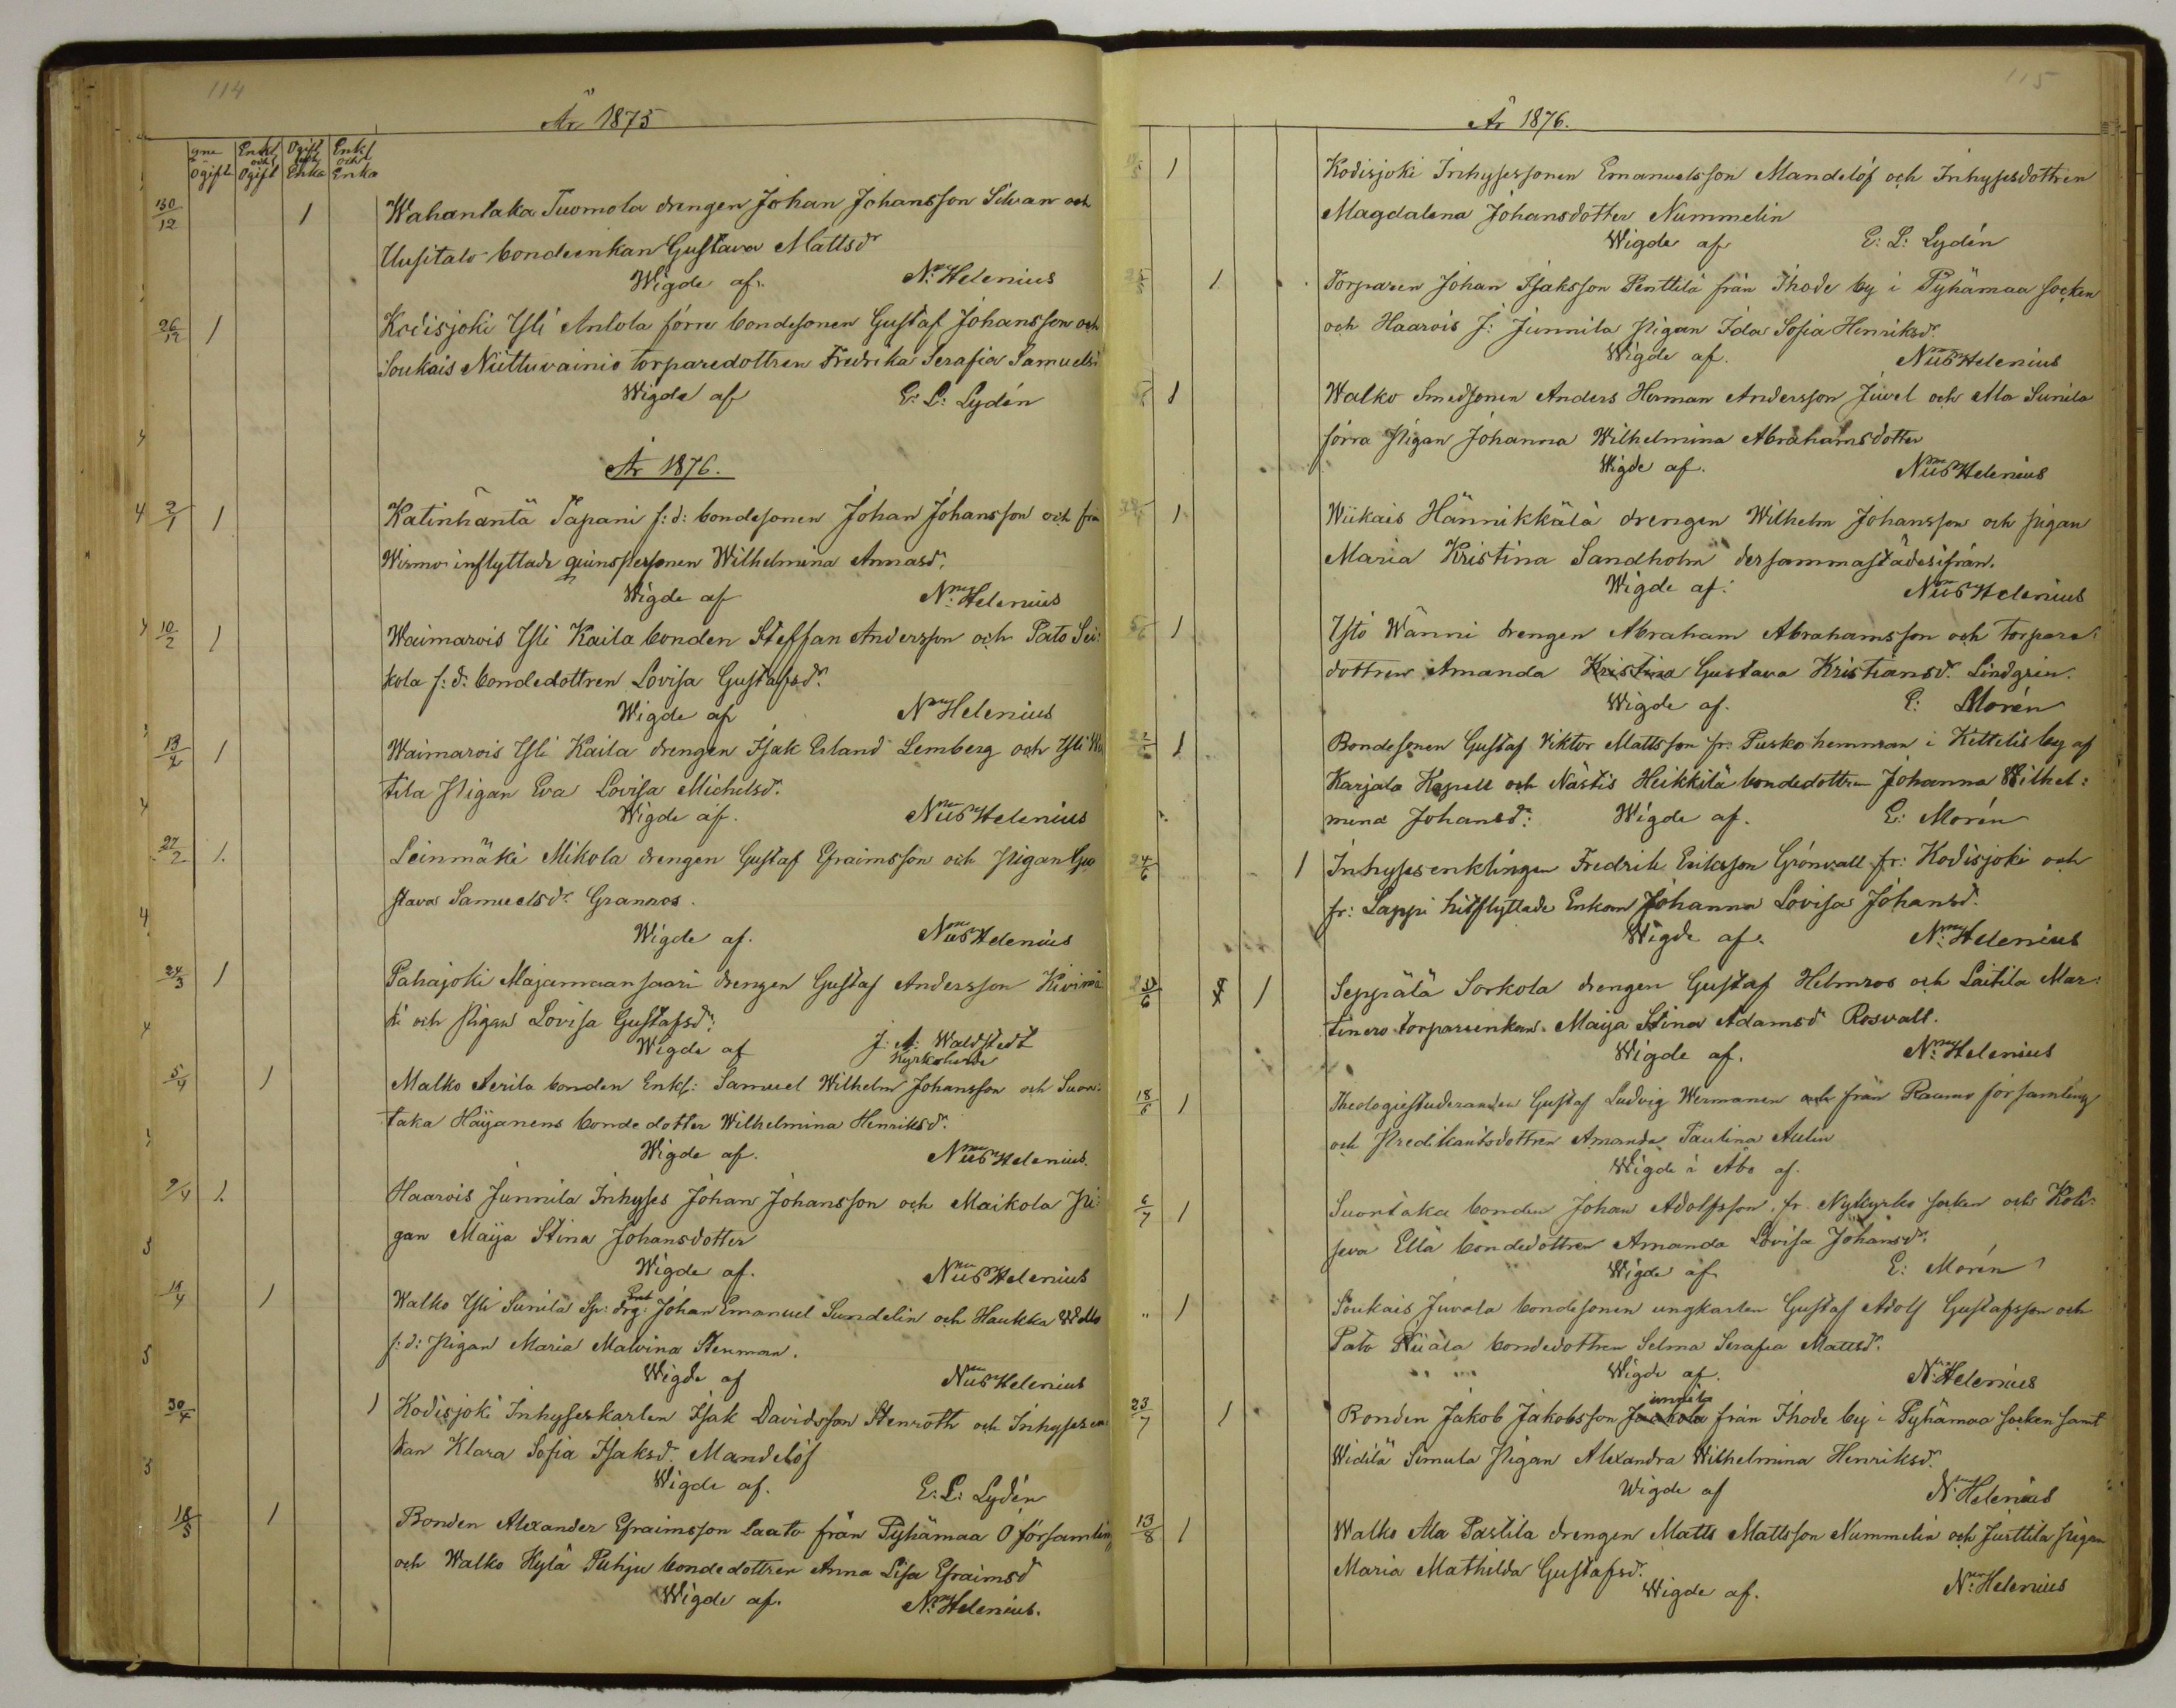 114
År 1875
Ogift Enkl och Ogift Ogift och Enka Enkl och Enka
30/12 1 Wahantaka Tuomola drengen Johan Johansson Silvan och
Uusitalo bondeenkan Gustava Mattsdr
Wigde af. N: Helenius
26/12 1 Kodisjoki Yli Antola förra bondesonen Gustaf Johansson och
Soukais Niittuvainio torparedottren Fredrika Serafia Samuels
Wigde af E: L: Lydén
År 1876.
2/1 1 Katinhäntä Tapani f: d: bondesonen Johan Johansson och från
Wirmo inflyttade qvinspersonen Wilhelmina Annasd:
Wigde af N: Helenius
10/2 1 Waimarois Yli Kaila bonden Steffan Andersson och Pato Sei:
kola f: d: bondedottren Lovisa Gustafsdr
Wigde af N Helenius
13/2 1 Waimarois Yli Kaila drengen Isak Erland Lemberg och Yli
tila Pigan Eva Lovisa Michelsdr.
Wigde af. Nils Helenius
27/2 1. Leinmäki Mikola drengen Gustaf Efraimsson och Pigan Gu
stava Samuelsdr Granros.
Wigde af. Nils Helenius
24/3 1 Pahajoki Majamaansaari drengen Gustaf Andersson Kivimä
ki och Pigan Lovisa Gustafsdr:
Wigde af J: A: Waldstedt
Kyrkoherde
5/4 1 Malko Aerila bonden Enkl: Samuel Wilhelm Johansson och Suon:
taka Häyänens bondedotter Wilhelmina Henriksdr.
Wigde af. Nils Helenius.
9/4 1. Haarois Junnila Inhyses Johan Johansson och Maikola Pi:
gan Maija Stina Johansdotter
Wigde af. Nils Helenius
1 Walko Yli Sunila Sp: drg: Johan Emanuel Sundelin och Haukka
f: d: Pigan Maria Malvina Stenman.
Wigde af Nils Helenius
30/4 1 Kodisjoki Inhyseskarlen Isak Davidsson Stenroth och Inhysesen
kan Klara Sofia Isaksdr. Mandelöf
Wigde af. E: L: Lydén
18/5 1 Bonden Alexander Efraimsson Laato från Pyhämaa Ö församling
och Walko Kylä Puhju bondedottren Anna Lisa Efraimsd
Wigde af. N: Helenius.
115
År 1876.
1 Kodisjoki Inhysessonen Emanuelsson Mandelöf och Inhysesdottren
Magdalena Johansdotter Nummelin
Wigde af E: L: Lydén
1 Torparen Johan Isaksson Penttilä från Ihode by i Pyhämaa socken
och Haarois J: Junnila Pigan Ida Sofia Henriksdr
Wigde af. Nils Helenius
1 Walko Smedsonen Anders Herman Andersson Juvel och Ala Sunila
förra Pigan Johanna Wilhelmina Abrahamsdotter
Wigde af. Nils Helenius
1 Wiikais Hännikkälä drengen Wilhelm Johansson och Pigan
Maria Kristina Sandholm dersammastädesifrån.
Wigde af: Nils Helenius
5/6 1 Ylö Wänni drengen Abraham Abrahamsson och torpare:
dottren Amanda Kristina Gustava Kristiansdr. Lindgren.
Wigde af. E: Morén
1 Bondesonen Gustaf Viktor Mattsson fr: Pusko hemman i Kettelis by af
Karjala Kapell och Nästis Heikkilä bondedottren Johanna Wilhel:
mina Johansd: Wigde af. E: Morén
24/6 1 Inhysesenklingen Fredrik Eriksson Grönvall fr: Kodisjoki och
fr: Lappi hitflyttade Enkan Johanna Lovisa Johansd.
Wigde af. N: Helenius
1 Seppälä Sorkola drengen Gustaf Helmros och Laitila Mar:
tinero torpareenkan Maija Stina Adamsd Rosvall.
Wigde af. N: Helenius
18/6 1 Theologiestuderanden Gustaf Ludvig Wermanen och från Raumo församling
och Predikantsdottren Amanda Paulina Aulin
Wigde i Åbo af.
6/7 1 Suontaka bonden Johan Adolfsson, fr. Nykyrko socken och Koli:
seva Ella bondedottren Amanda Lovisa Johansdr.
Wigde af E: Morén
" 1 Soukais Juvala bondesonen ungkarlen Gustaf Adolf Gustafsson och
Pato bondedottren Selma Serafia Mattsd.
Wigde af. N: Helenius
23/7 1 Bonden Jakob Jakobsson Jaakola unnila från Ihode by i Pyhämaa socken samt
Widilä Simula Pigan Alexandra Wilhelmina Henriksdr.
Wigde af N: Helenius
13/8 1 Walko Ala Pastila drengen Matts Mattsson Nummelin och Juttila pigan
Maria Mathilda Gustafsd.
Wigde af. N: Helenius